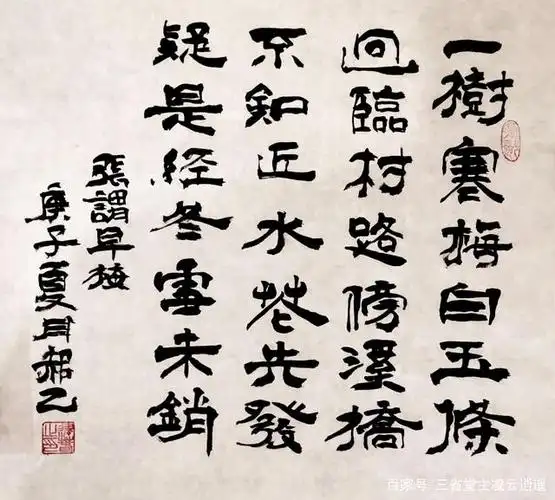 一樹寒梅白玉條
迥臨村路傍溪橋
不知近水花先發
疑是経冬雪未銷
張謂早梅
庚子夏月乙
百家号/三省堂主凌云逍遥